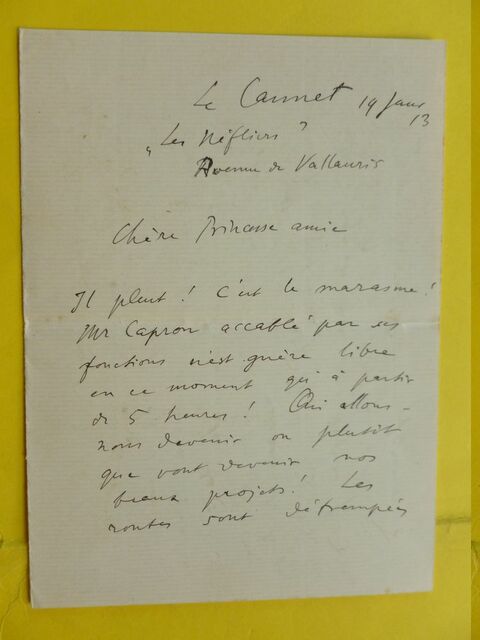 Le Cannet 19 Janv
13
"Les Néfliers"
Avenue de Vallauris
Chère Princesse amie
Il pleut ! C'est le marasme !
Mr Capron accablé par ses
fonctions n'est guère libre
en ce moment qu'à partir
de 5 heures ! Qu'allons-
nous devenir ou plutôt
que vont devenir nos
beaux projets ! Les
routes sont détrempées